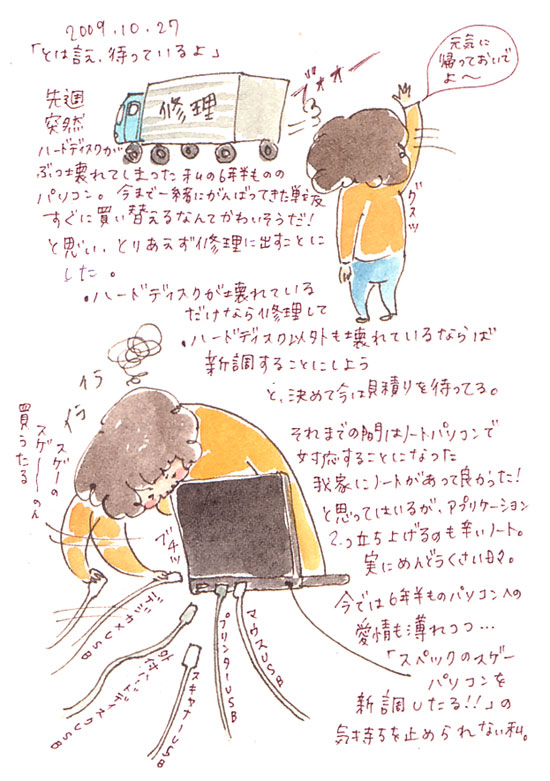 2009.10.27
「とは言え、待っているよ」
元気に
帰っておいで
よ～
修理
ブオオー
グスッ
先週
突然
ハードディスクが
ぶっ壊れてしまった私の6年半ものの
パソコン。今まで一緒にがんばってきた戦友
すぐに買い替えるなんてかわいそうだ!
と思い、とりあえず修理に出すことに
した。
・ハードディスクが壊れている
だけなら修理して
・ハードディスク以外も壊れているならば
新調することにしよう
と、決めて今は見積りを待ってる。
イラ
イラ
スゲーの
スゲーーのん
買うたる
ブチッ
それまでの間はノートパソコンで
対応することになった
我家にノートがあって良かった!
と思ってはいるが、アプリケーション
2つ立ち上げるのも辛いノート。
実にめんどうくさい日々。
デジカメUSB
外付ハードディスクUSB
スキャナーUSB
プリンターUSB
マウスUSB
今では6年半ものパソコンへの
愛情も薄れつつ…
「スペックのスゲー
パソコンを
新調したる!!」の
気持ちを止められない私。